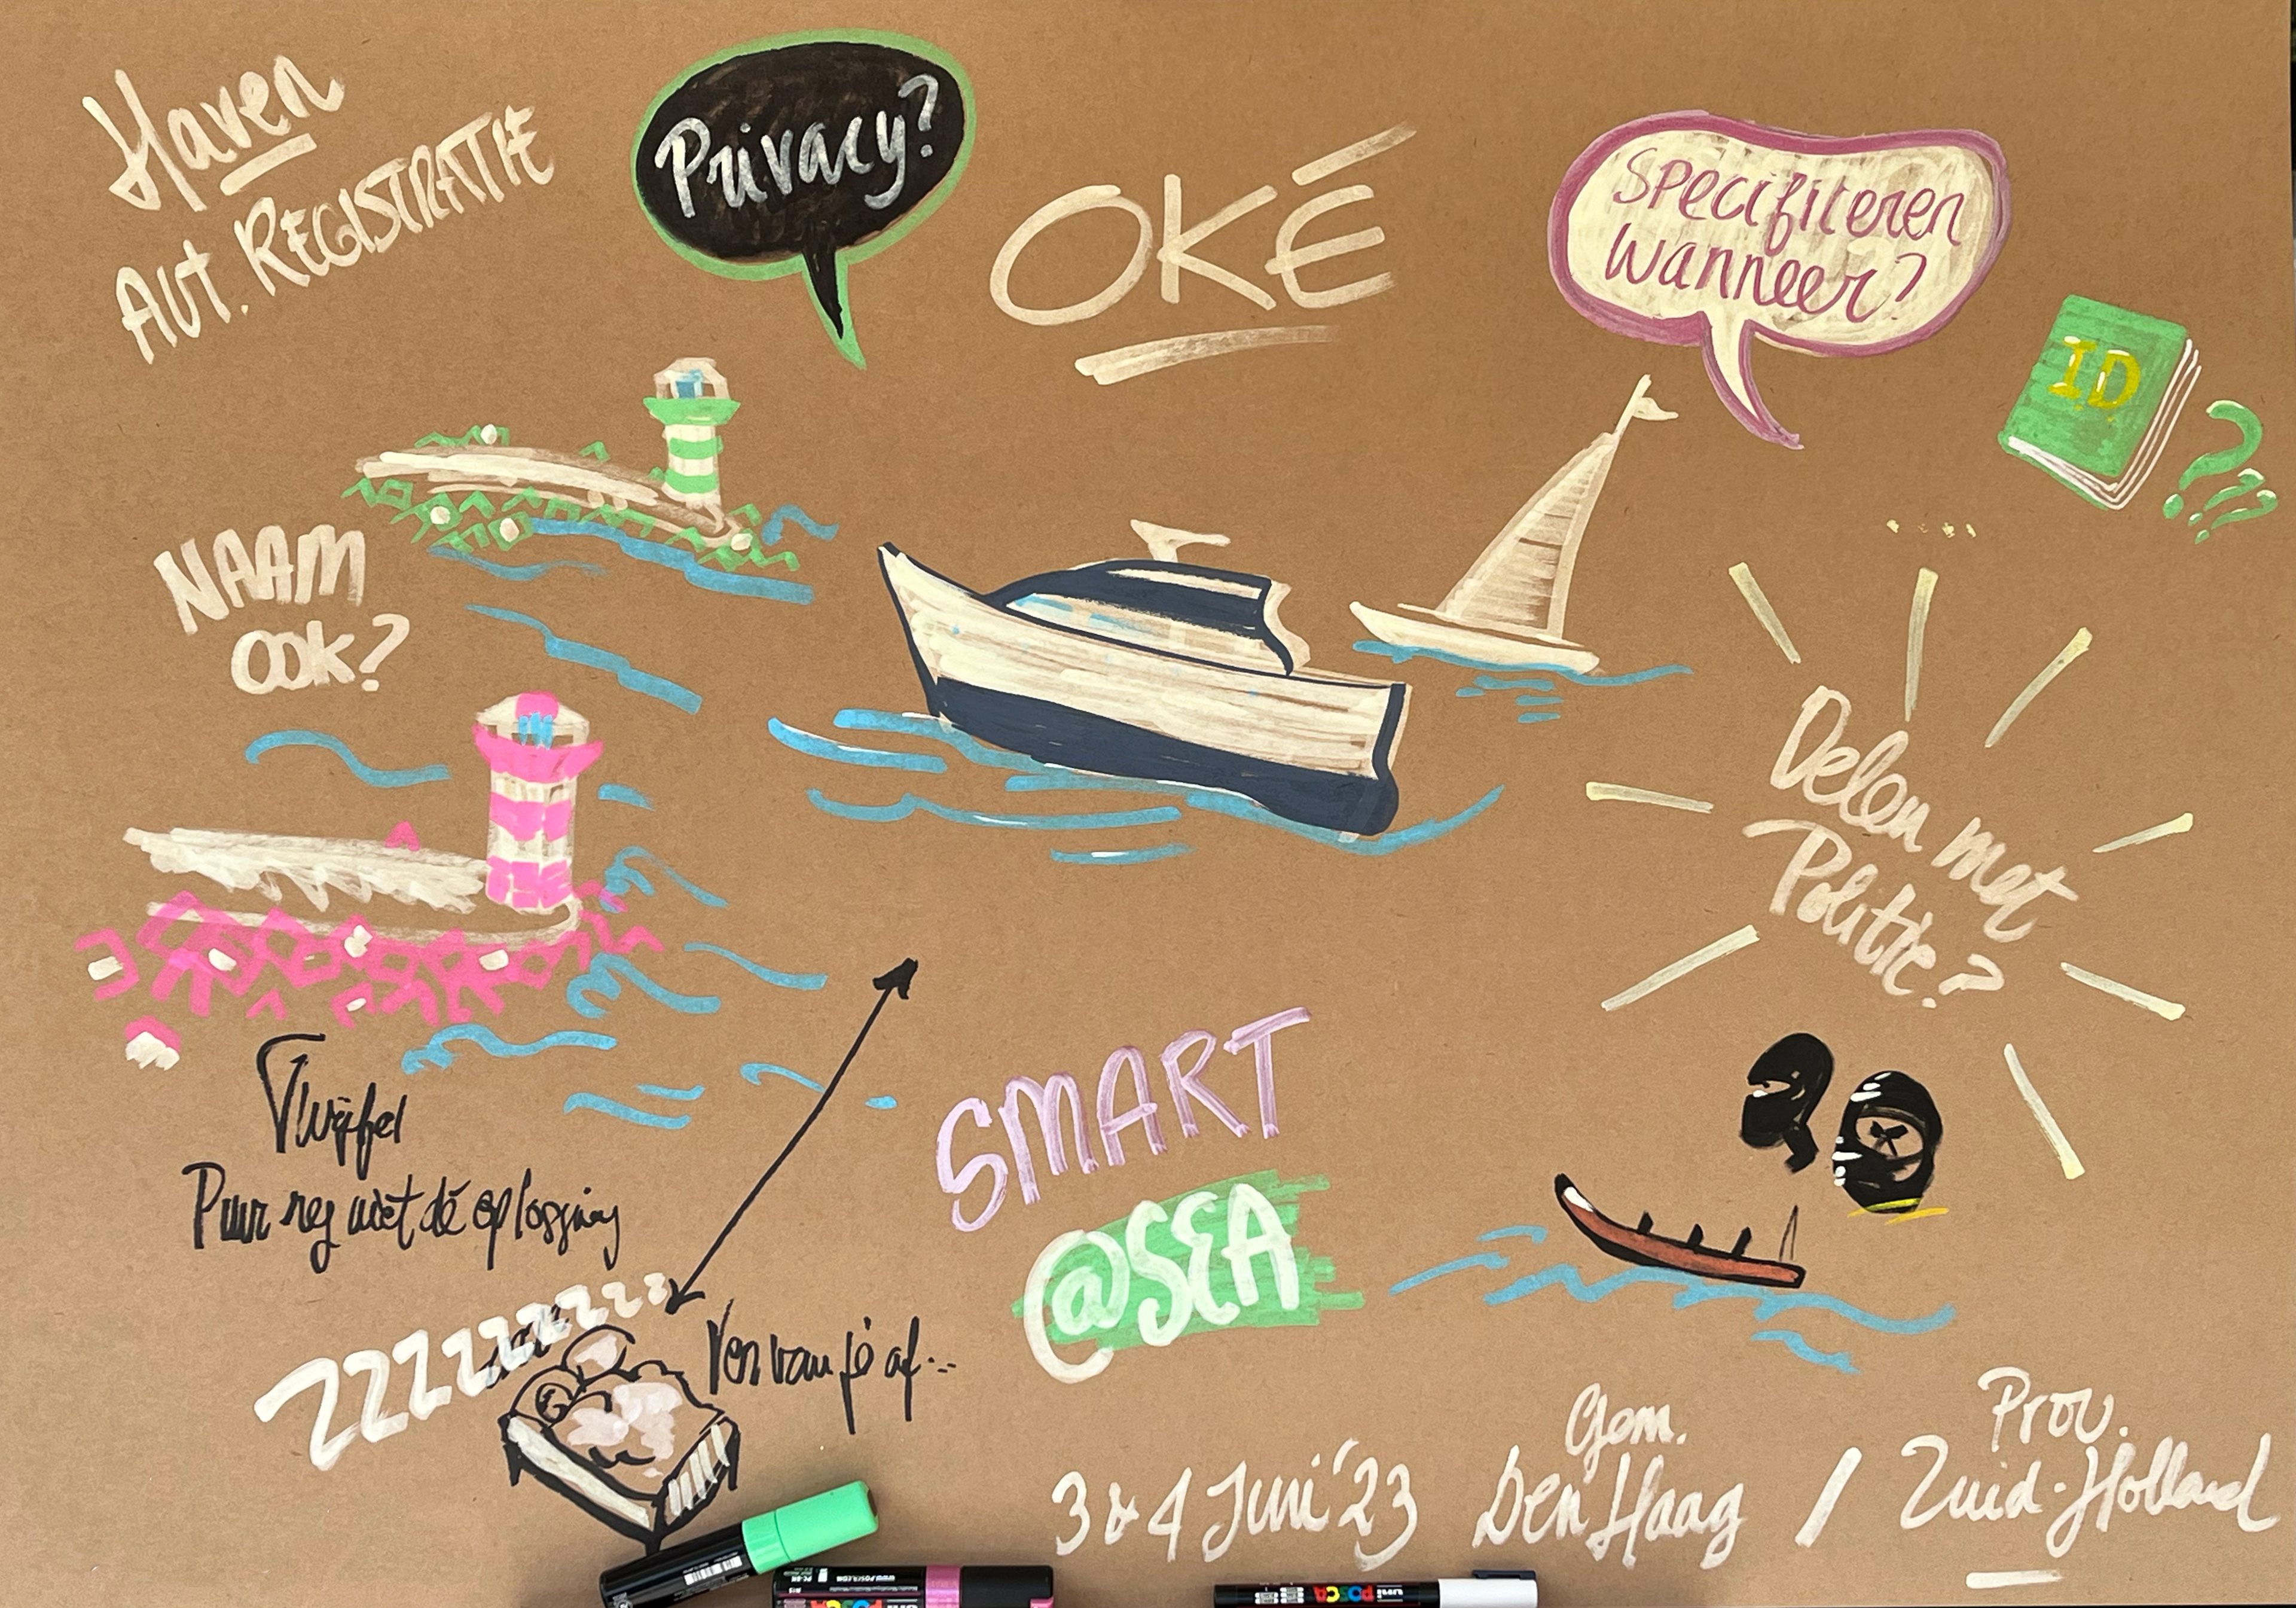 Haven
AUT. REGISTRATIE
Privacy?
OKÉ
Specificeren
wanneer?
ID
???
NAAM
OOK?
Delen met
Politie?
Twijfel
Puur reg niet dé oplossing
SMART
@SEA
ZZZZZZZZZZ
Ver van je af...
3 & 4 Juni '23
Gem.
Den Haag
/
Prov.
Zuid-Holland
POSCA
POSCA